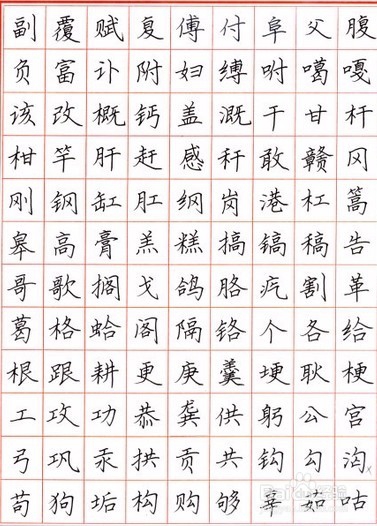 副覆赋复傅付阜父腹
负富讣附妇缚咐噶嘎
该改概钙盖溉干甘杆
柑竿肝赶感秆敢赣冈
刚钢缸肛纲岗港杠篙
皋高膏羔糕搞镐稿告
哥歌搁戈鸽胳疙割革
葛格蛤阁隔铬个各给
根跟耕更庚羹埂耿梗
工攻功恭龚供躬公宫
弓巩汞拱贡共钩勾沟
苟狗垢构购够辜菇咕